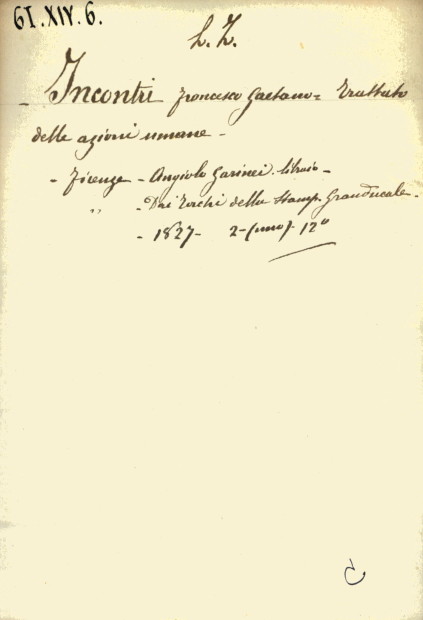 61.XIV.6.
L. Z.
- Incontri Francesco Gaetano = Trattato
delle azioni umane -
- Firenze - Angiolo Garinei libraio -
" - Dai Torchi della Stamp. Granducale -
- 1827 - 2 - (uno) - 12°